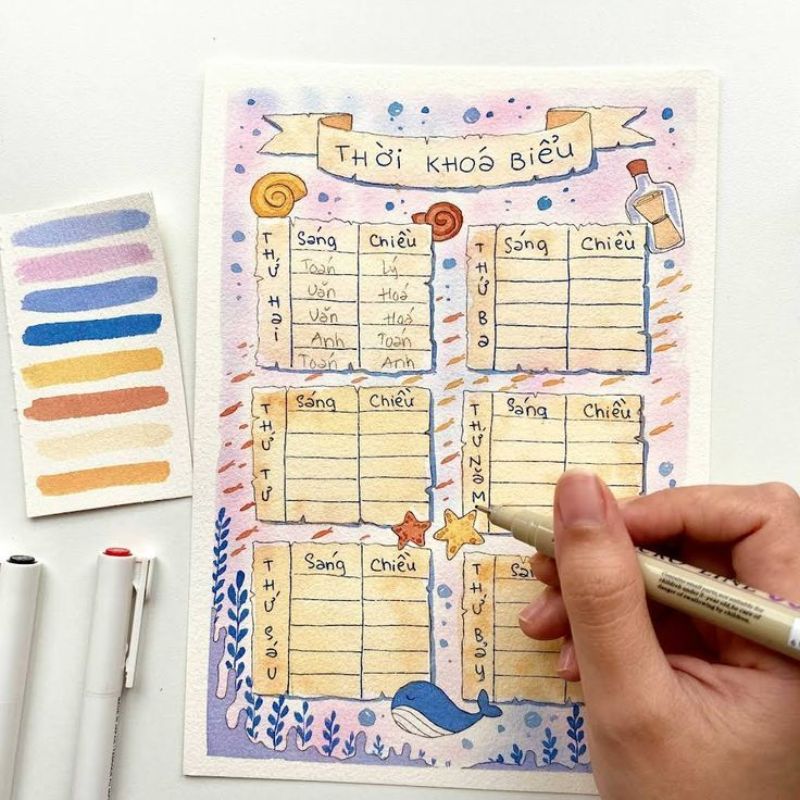 THỜI KHOÁ BIỂU
THỨ HAI
Sáng Chiều
Toán Lý
Văn Hoá
Văn Hoá
Anh Toán
Toán Anh
THỨ BA
Sáng Chiều
THỨ TƯ
Sáng Chiều
THỨ NĂM
Sáng Chiều
THỨ SÁU
Sáng Chiều
THỨ BẢY